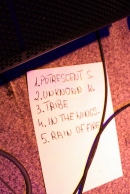 1. PUTRESCENT S.
2. UNKNOWN
3. TRIBE
4. IN THE WINGS
5. RAIN OF FIRE